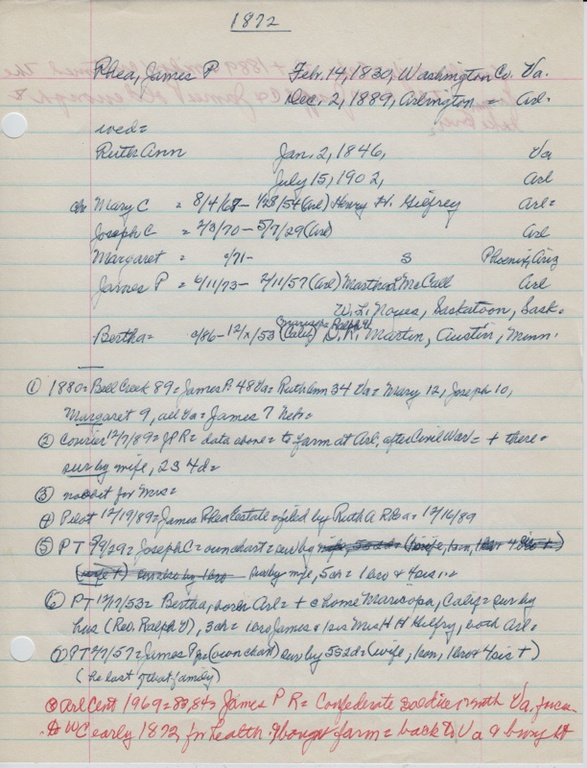 1872
Rhea, James P Feb. 14, 1830, Washington Co. Va.
Dec. 2, 1889, Arlington = Arl.
wed=
Ruth Ann Jan. 2, 1846, Va
July 15, 1902, Arl
ch Mary C = 8/4/68- 1/28/54 (Arl) Henry H. Gilfrey Arl=
Joseph C = 2/3/70 - 5/7/29 (Arl) Arl
Margaret = /71- S Phoenix, Ariz
James P = 6/11/73- 2/11/57 (Arl) Martha L McCall Arl
W. L. Noyes, Saskatoon, Sask.
Maricopa, Ralph V
Bertha= /86-12/x/53 (Calif) D. R. Martin, Austin, Minn.
① 1880= Bell Creek 89= James P. 48 Va= Ruth Ann 34 Va= Mary 12, Joseph 10,
Margaret 9, all Va= James 7 Neb.=
② Courier 12/7/89= JPR= data above= to farm at Arl. after Civil War= + there.
sur by wife, 2s 4d=
③ no obit for Mrs=
④ Pilot 12/19/89= James Rhea estate filed by Ruth A Rhea= 12/16/89
⑤ PT 5/9/29= Joseph C= own chart= sur by wife, 5s2d= (1wife, 1son, 1bro 4 sis +)
(wife +) sur by 1bro sur by wife, 5ch= 1bro & 4sis
⑥ PT 12/17/53= Bertha, born Arl= + @ home Maricopa, Calif= sur by
hus (Rev. Ralph V), 3ch= 1bro James & 1sis Mrs H H Gilfry, both Arl.
⑦ PT 2/7/57= James P= (own chart) sur by 5s2d= (wife, 1son, 1bro & 4sis +)
(he last of that family)
⑧ Arl Cent 1969= 83,84= James P R= Confederate soldier with Va. forces
to WC early 1872 for health & bought farm= back to Va & brought